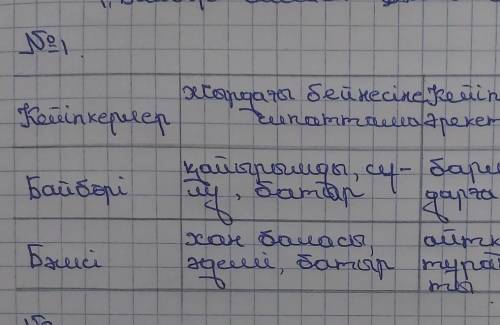 №1.
Кейіпкерлер
жырдағы бейнесіне
сипаттама
Кейіп
әрекет
Байбөрі
қайырымды, сұ-
лу, батыр
барл
дарға
Бәмсі
хан баласы,
әдемі, батыр
айтқ
тұрай
ты
№